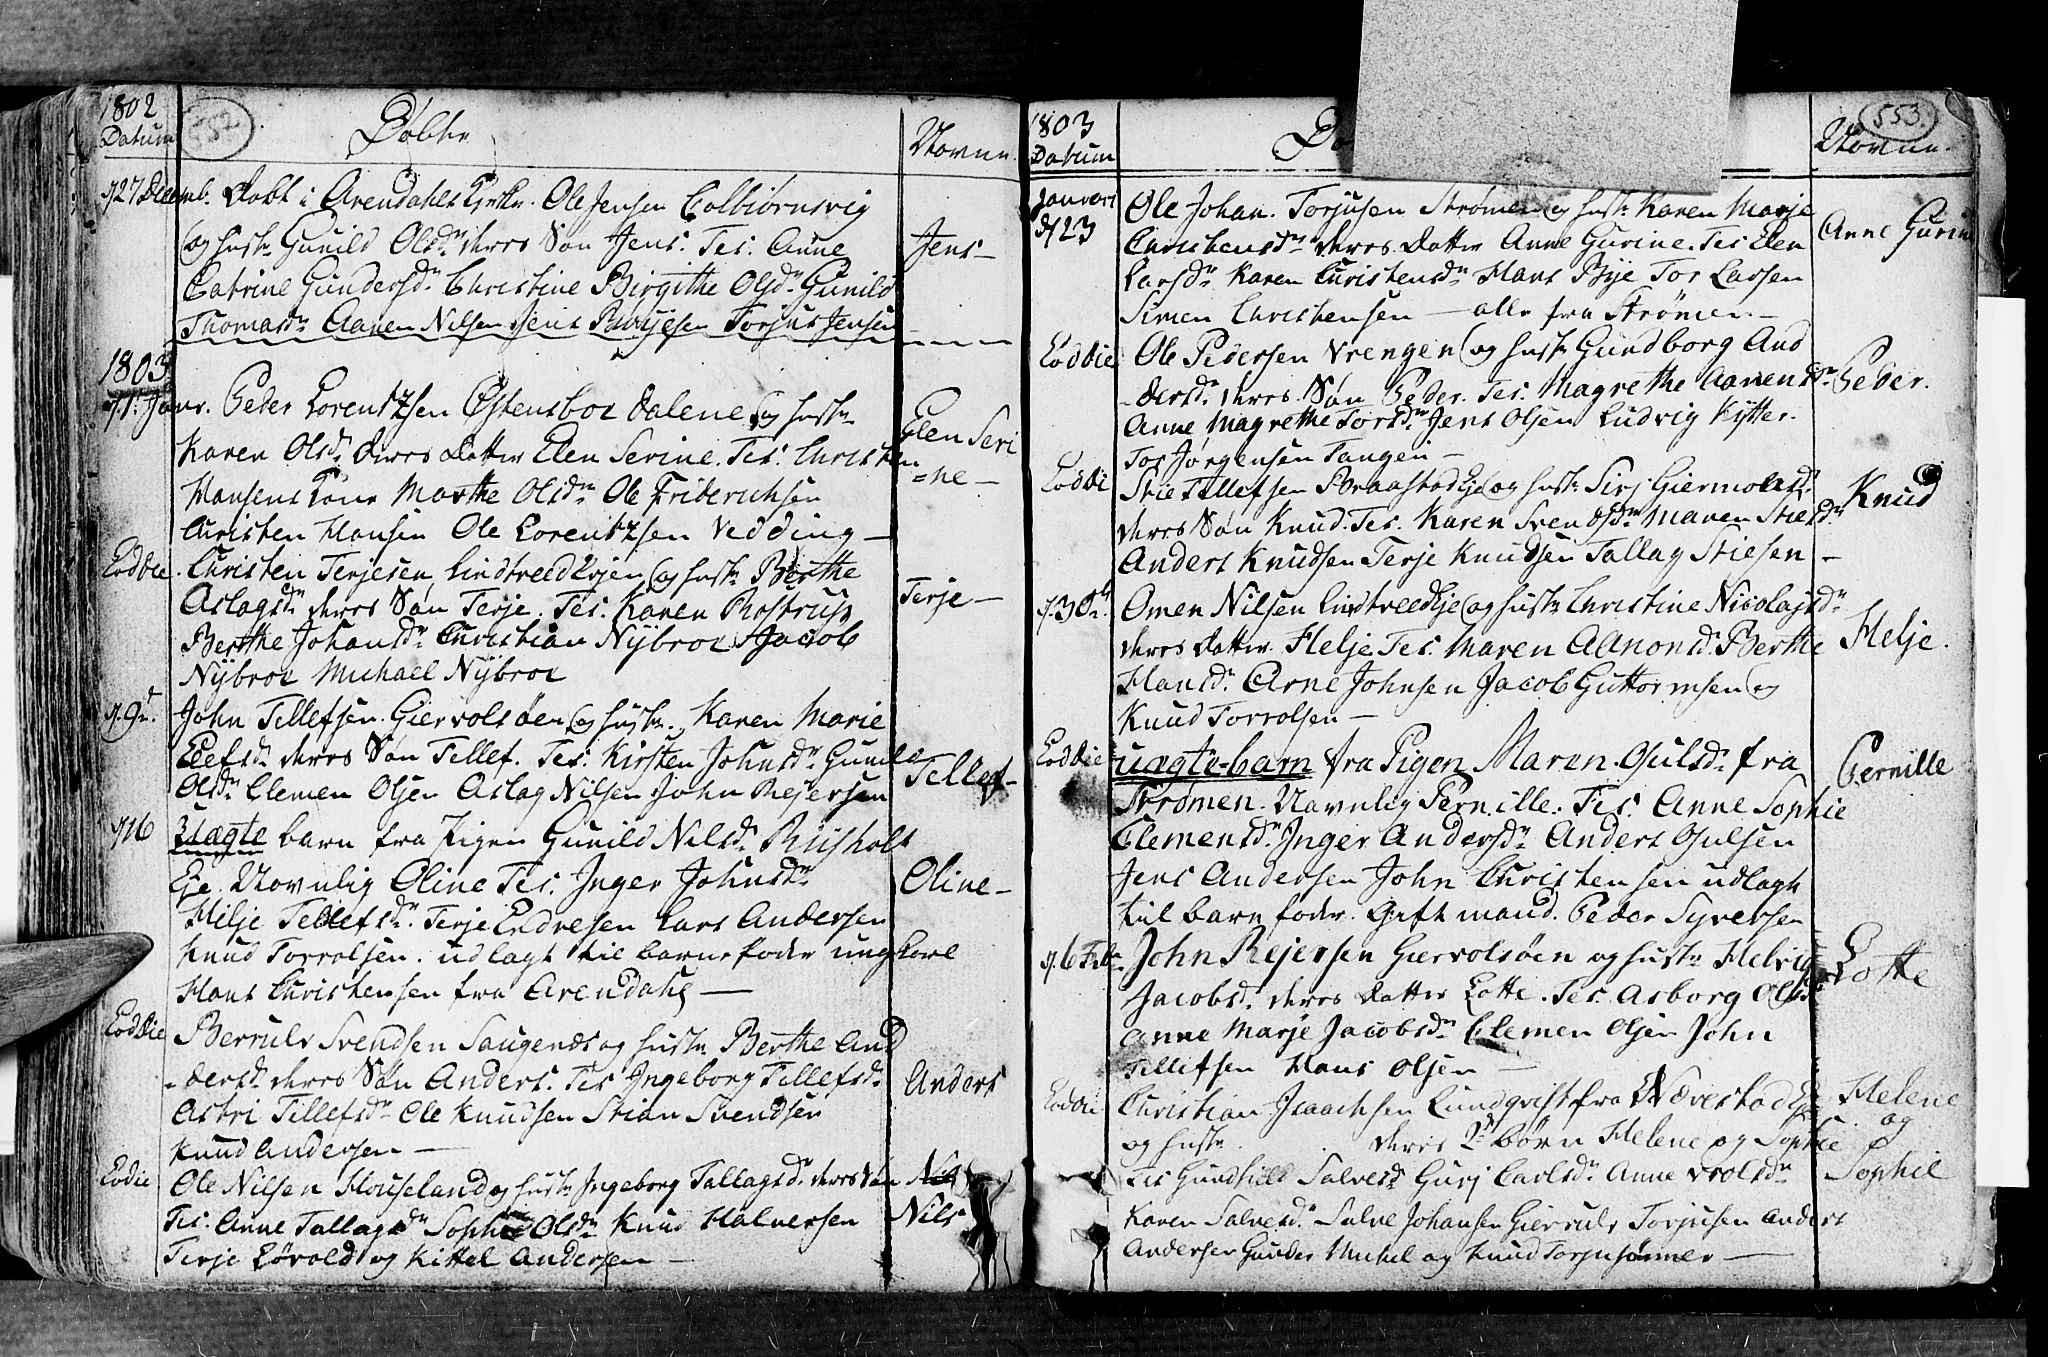 1802
Datum
552
Døbte
Navne.
d 27 Decemb. Døbt i Arendahls Kirke. Ole Jensen Colbiørnsvig
og hustr. Gunild Olsdr. deres Søn Jens. Tes. Anne
Jens –
Catrine Gundersdr. Christine Birgithe Olsdr. Gunild
Thomasdr. Aanen Nilsen Jens Børjesen Torjus Jensen
1803
d 1. Janr. Peder Lorentzsen Østensboe Dalene og hustr.
Karen Olsd. deres Datter Elen Serine. Tes. Christen
Elen Seri
=ne –
Hansens Kone Marthe Olsdr. Ole Friderichsen
Christen Hansen Ole Lorentzsen Vedding –
Eoddie. Christen Terjesen Lindtveed Ejen og hustr. Berthe
Aslagsdr. deres Søn Terje. Tes. Karen Rostrup
Terje –
Berthe Johansdr. Christian Nÿbroe Jacob
Nÿbroe Michael Nÿbroe
d. 9de. John Tellefsen Giervolsøen og hustr. Karen Marie
Elefsdr. deres Søn Tellef. Tes. Kirsten Johnsdr. Gunild
Tellef –
Olsdr. Clemen Olsen Aslag Nilsen John Rejersen
d 16 Uægte barn fra Pigen Gunild Nilsdr. Riisholt
Eje. Navnlig Oline Tes. Inger Johnsdr.
Oline –
Helje Tellefsdr. Terje Endresen Lars Andersen
Knud Torrolsen. udlagt til barnefader ungkarl
Hans Christensen fra Arendahl –
Eoddie Berruls Svendsen Saugenes og hustr. Berthe And
=dersdr. deres Søn Anders. Tes Ingeborg Tellefsdr.
Anders
Astri Tellefsdr. Ole Knudsen Stian Svendsen
Knud Andersen –
Eodie Ole Nilsen Houseland og hustr. Ingeborg Tallagsdr. deres Søn
Nils
Tes. Anne Tallagsdr. Sophie Olsdr. Knud Halversen
Nils
Terje Løvold og Kittel Andersen –
1803
Datum
553.
Navne.
Januari
d 23
Ole Johan Torjusen Strømen og hustr. Karen Marje
Christensdr. deres Datter Anne Gurine. Tes Elen
Anne Gurin
Larsdr. Karen Christensdr. Hans Bÿe Tor Larsen
Simen Christensen – alle fra Strømen –
Eoddie Ole Pedersen Vrengen og hustr. Gundborg And
=dersdr. deres Søn Peder. Tes. Magrethe Aanensdr.
Peder.
Anne Magrethe Torsdr. Jens Olsen Ludvig Kÿtter.
Tor Jørgensen Tangen –
Eoddie Stie Tellefsen Braastad Eje og hustr. Sirj Giermolsdr.
deres Søn Knud. Tes. Karen Svendsdr. Maren Stiesdr.
Knud
Anders Knudsen Terje Knudsen Tallag Stiesen –
d. 30te. Omen Nilsen Lindtveed Eje og hustr. Christine Nicolajsdr.
deres Datter Helje Tes. Maren Aanonsd. Berthe
Helje.
Hansdr. Arne Johnsen Jacob Guttormsen og
Knud Torrolsen –
Eoddie uægte-barn fra Pigen Maren Gulsdr. fra
Pernille
Strømen. Navnlig Pernille. Tes. Anne Sophie
Clemensdr. Inger Andersdr. Anders Gulsen
Jens Andersen John Christensen udlagt
til barnefader. Gift mand. Peder Syversen
d. 6 Febr. John Rejersen Giervolsøen og hustr. Helvig
Lotte
Jacobsdr. deres Datter Lotte. Tes. Asborg Olsdr.
Anne Marje Jacobsdr. Clemen Olsen John
Tellefsen Hans Olsen –
Eoddie Christian Isaachsen Lundqvist fra Næverstad Eje
Helene
og
Sophie
og hustr. deres 2de børn Helene og Sophie
Tes Gundhild Salvesdr. Gurj Carlsdr. Anne Vrolsdr.
Karen Salvesdr. Salve Johansen Gierruls Torjusen Anders
Andersen Gunder Michel og Knud Torjusønner –